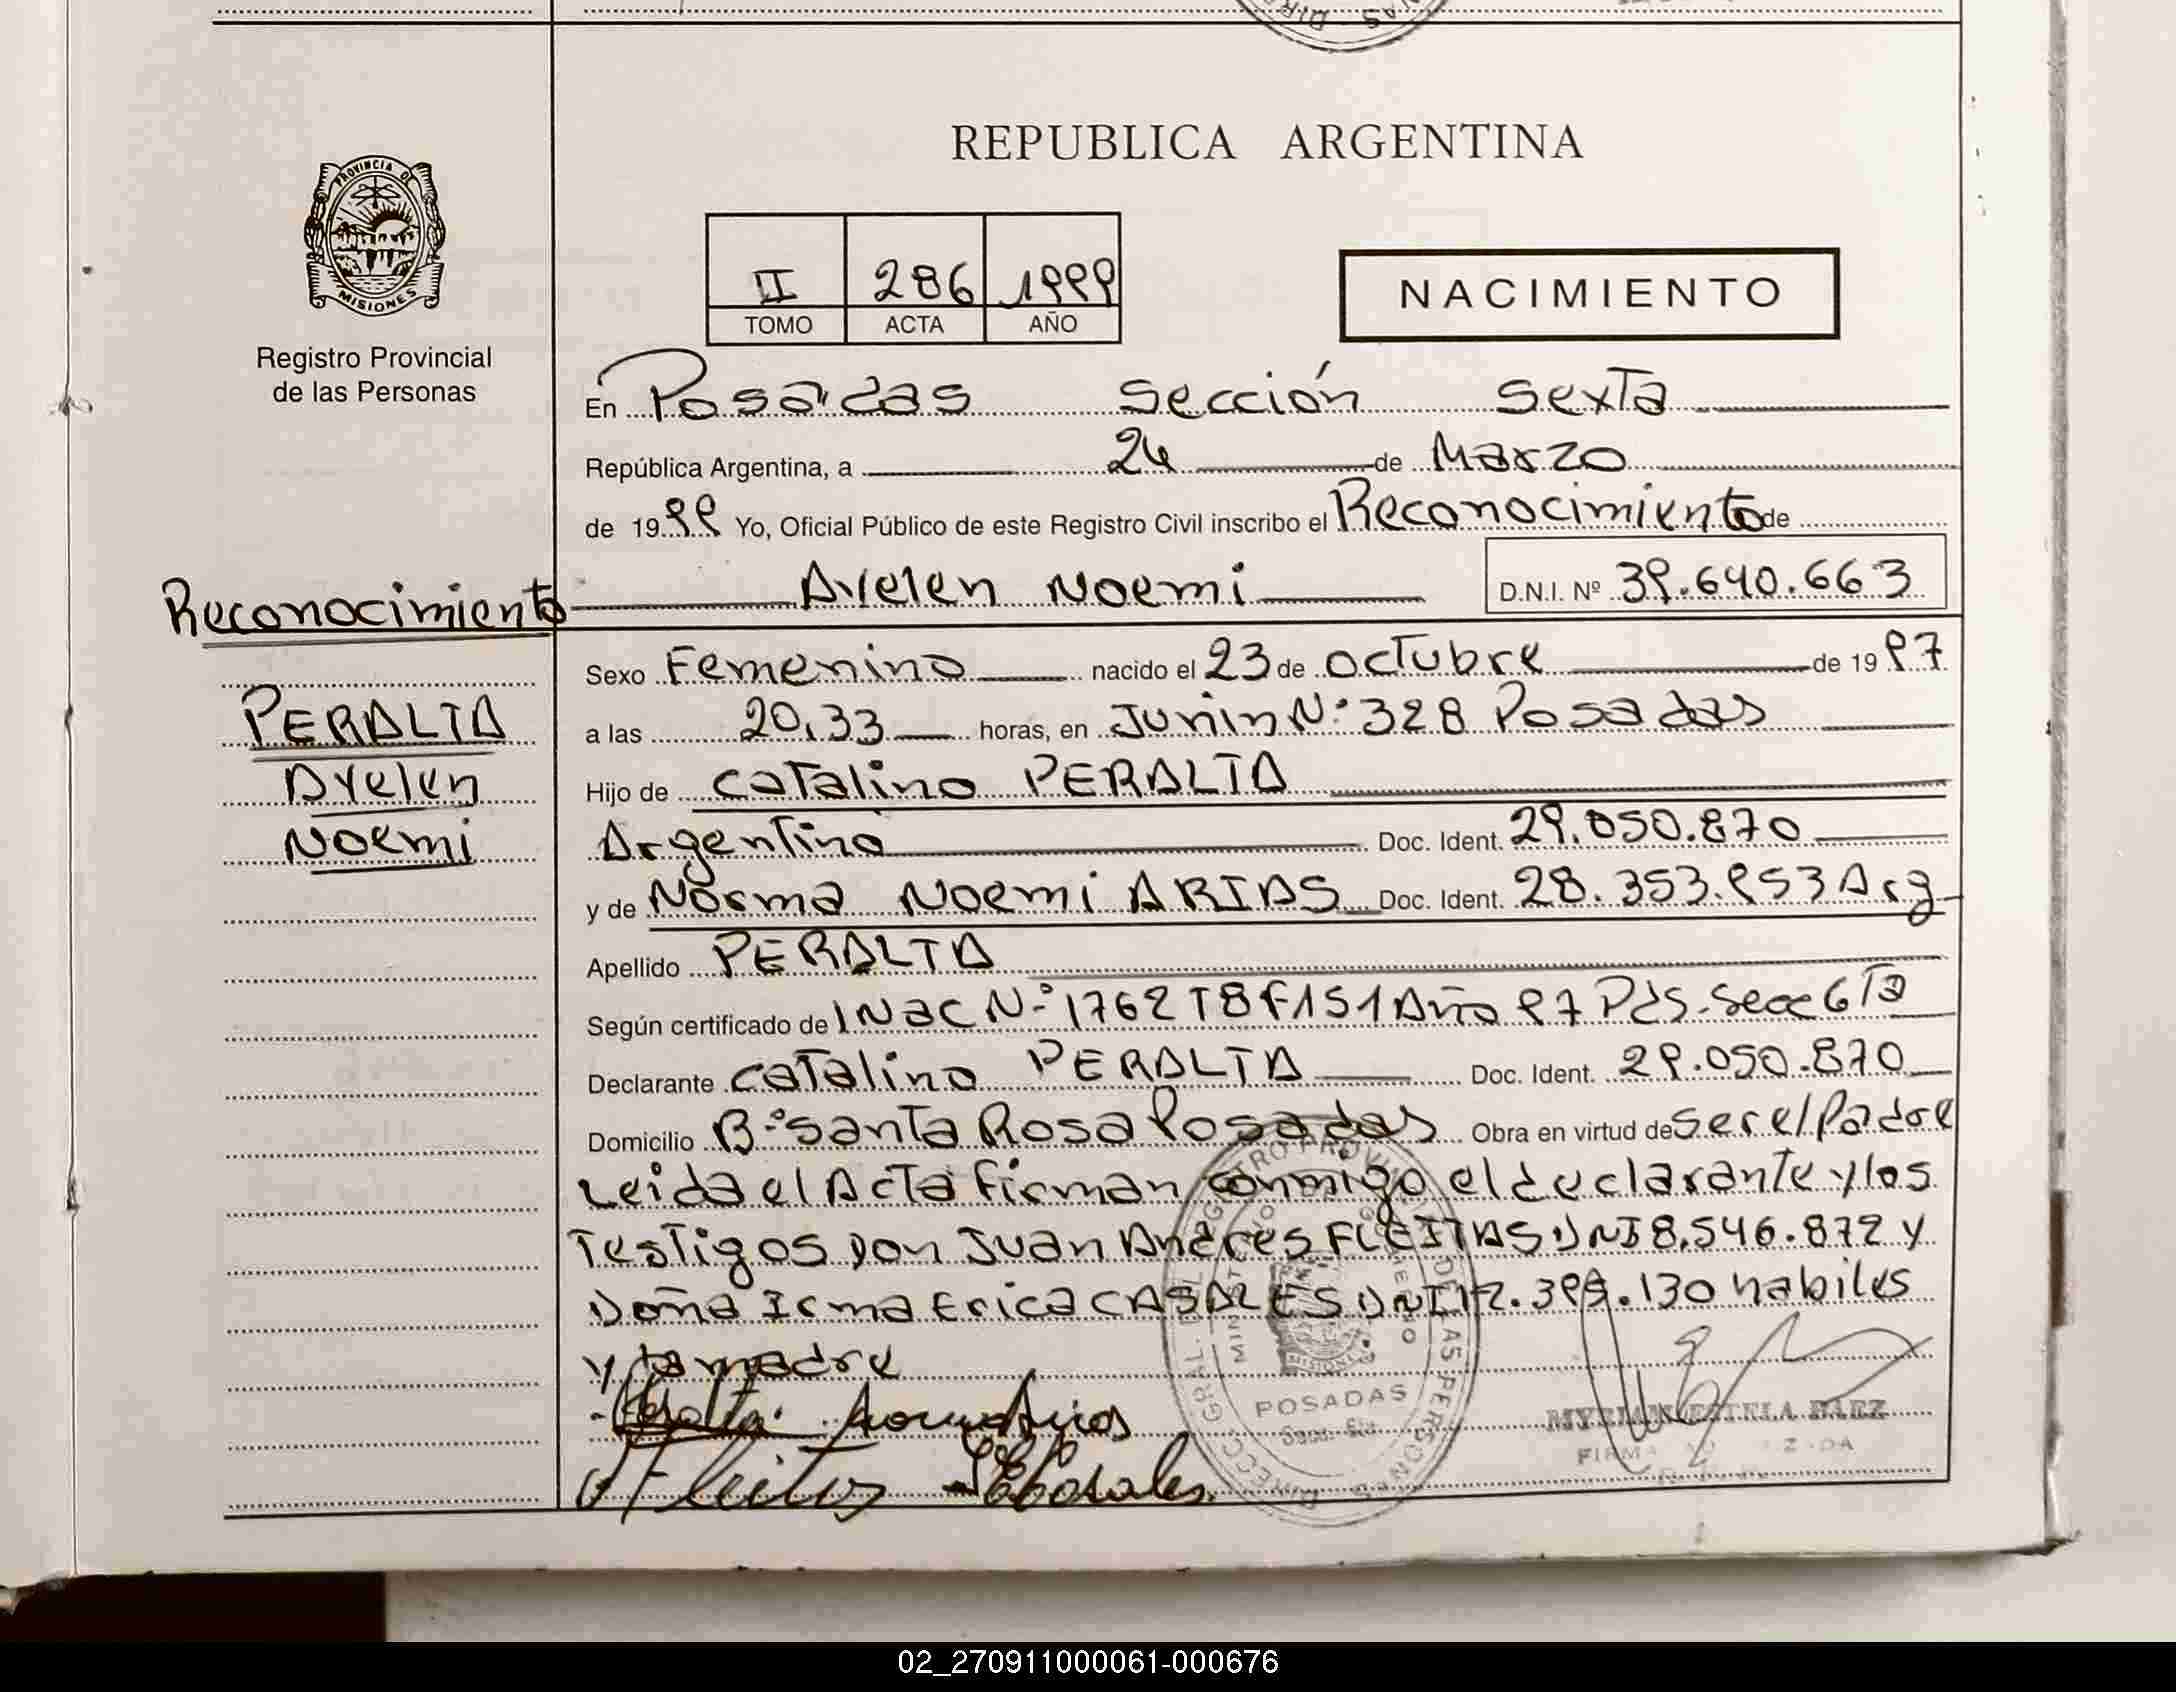 REPUBLICA ARGENTINA
PROVINCIA DE
MISIONES
Registro Provincial
de las Personas
II 286 1999
TOMO ACTA AÑO
NACIMIENTO
En Posadas sección sexta
República Argentina, a 24 de Marzo
de 1999 Yo, Oficial Público de este Registro Civil inscribo el Reconocimiento de
Reconocimiento
Ayelen Noemi D.N.I. Nº 39.640.663
Sexo Femenino nacido el 23 de octubre de 1997
PERALTA
a las 20,33 horas, en Junin N° 328 Posadas
Ayelen
Hijo de Catalino PERALTA
Noemi
Argentino Doc. Ident. 29.050.870
y de Norma Noemi ARIAS Doc. Ident. 28.353.953 Arg
Apellido PERALTA
Según certificado de INac N° 1762 T8 F151 Año 97 Pds-Secc 6ta
Declarante Catalino PERALTA Doc. Ident. 29.050.870
Domicilio B° Santa Rosa Posadas Obra en virtud de ser el Padre
Leida el Acta Firman conmigo el declarante y los
Testigos Don Juan Andres FLEITAS DNI 8.546.872 y
Doña Irma Erica CASALES DNI 12.399.130 habiles
y la madre
Peralta Norma Arias
Fleitas Casales
POSADAS
MYRIAN ESTELA BAEZ
02_270911000061-000676